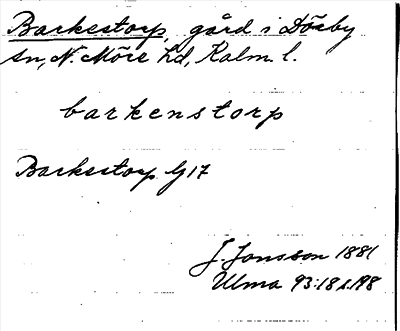 Barkestorp, gård i Dörby
sn, N. Möre hd, Kalm. l.
barkenstorp
Barkestorp G17
J. Jonsson 1881
Ulma 93:18 s. 198